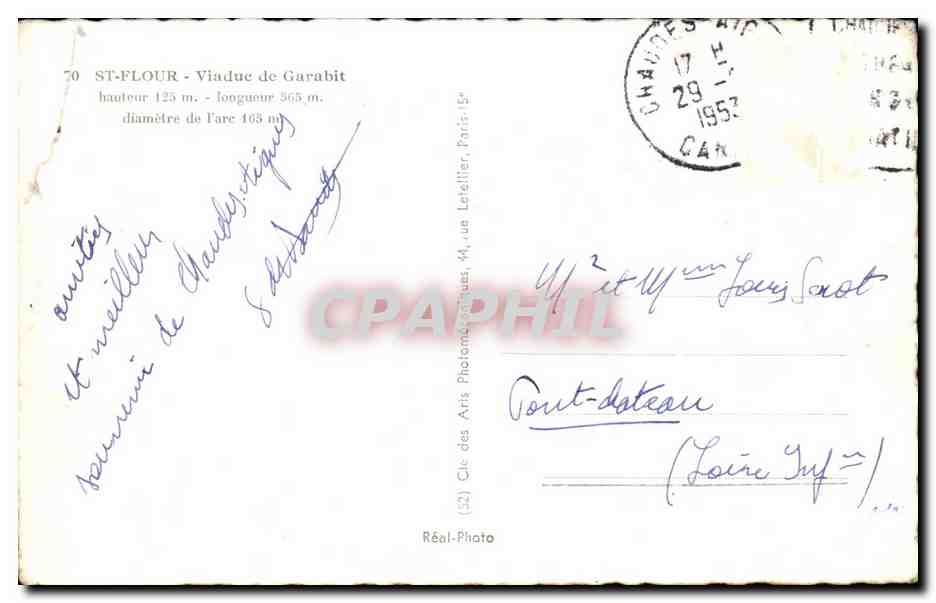 70 ST-FLOUR - Viaduc de Garabit
hauteur 125 m. - longueur 565 m.
diamètre de l'arc 165 m
amitiés
et meilleur
souvenir de Chaudes-Aigues
CHAUDES-AIG
17 H
29 -
1953
CAN
(52) Cie des Arts Photomécaniques, 44, rue Letellier, Paris-15e
CPAPHIL
Mr et Mme Louis
Pont-chateau
(Loire Infre)
Réal-Photo